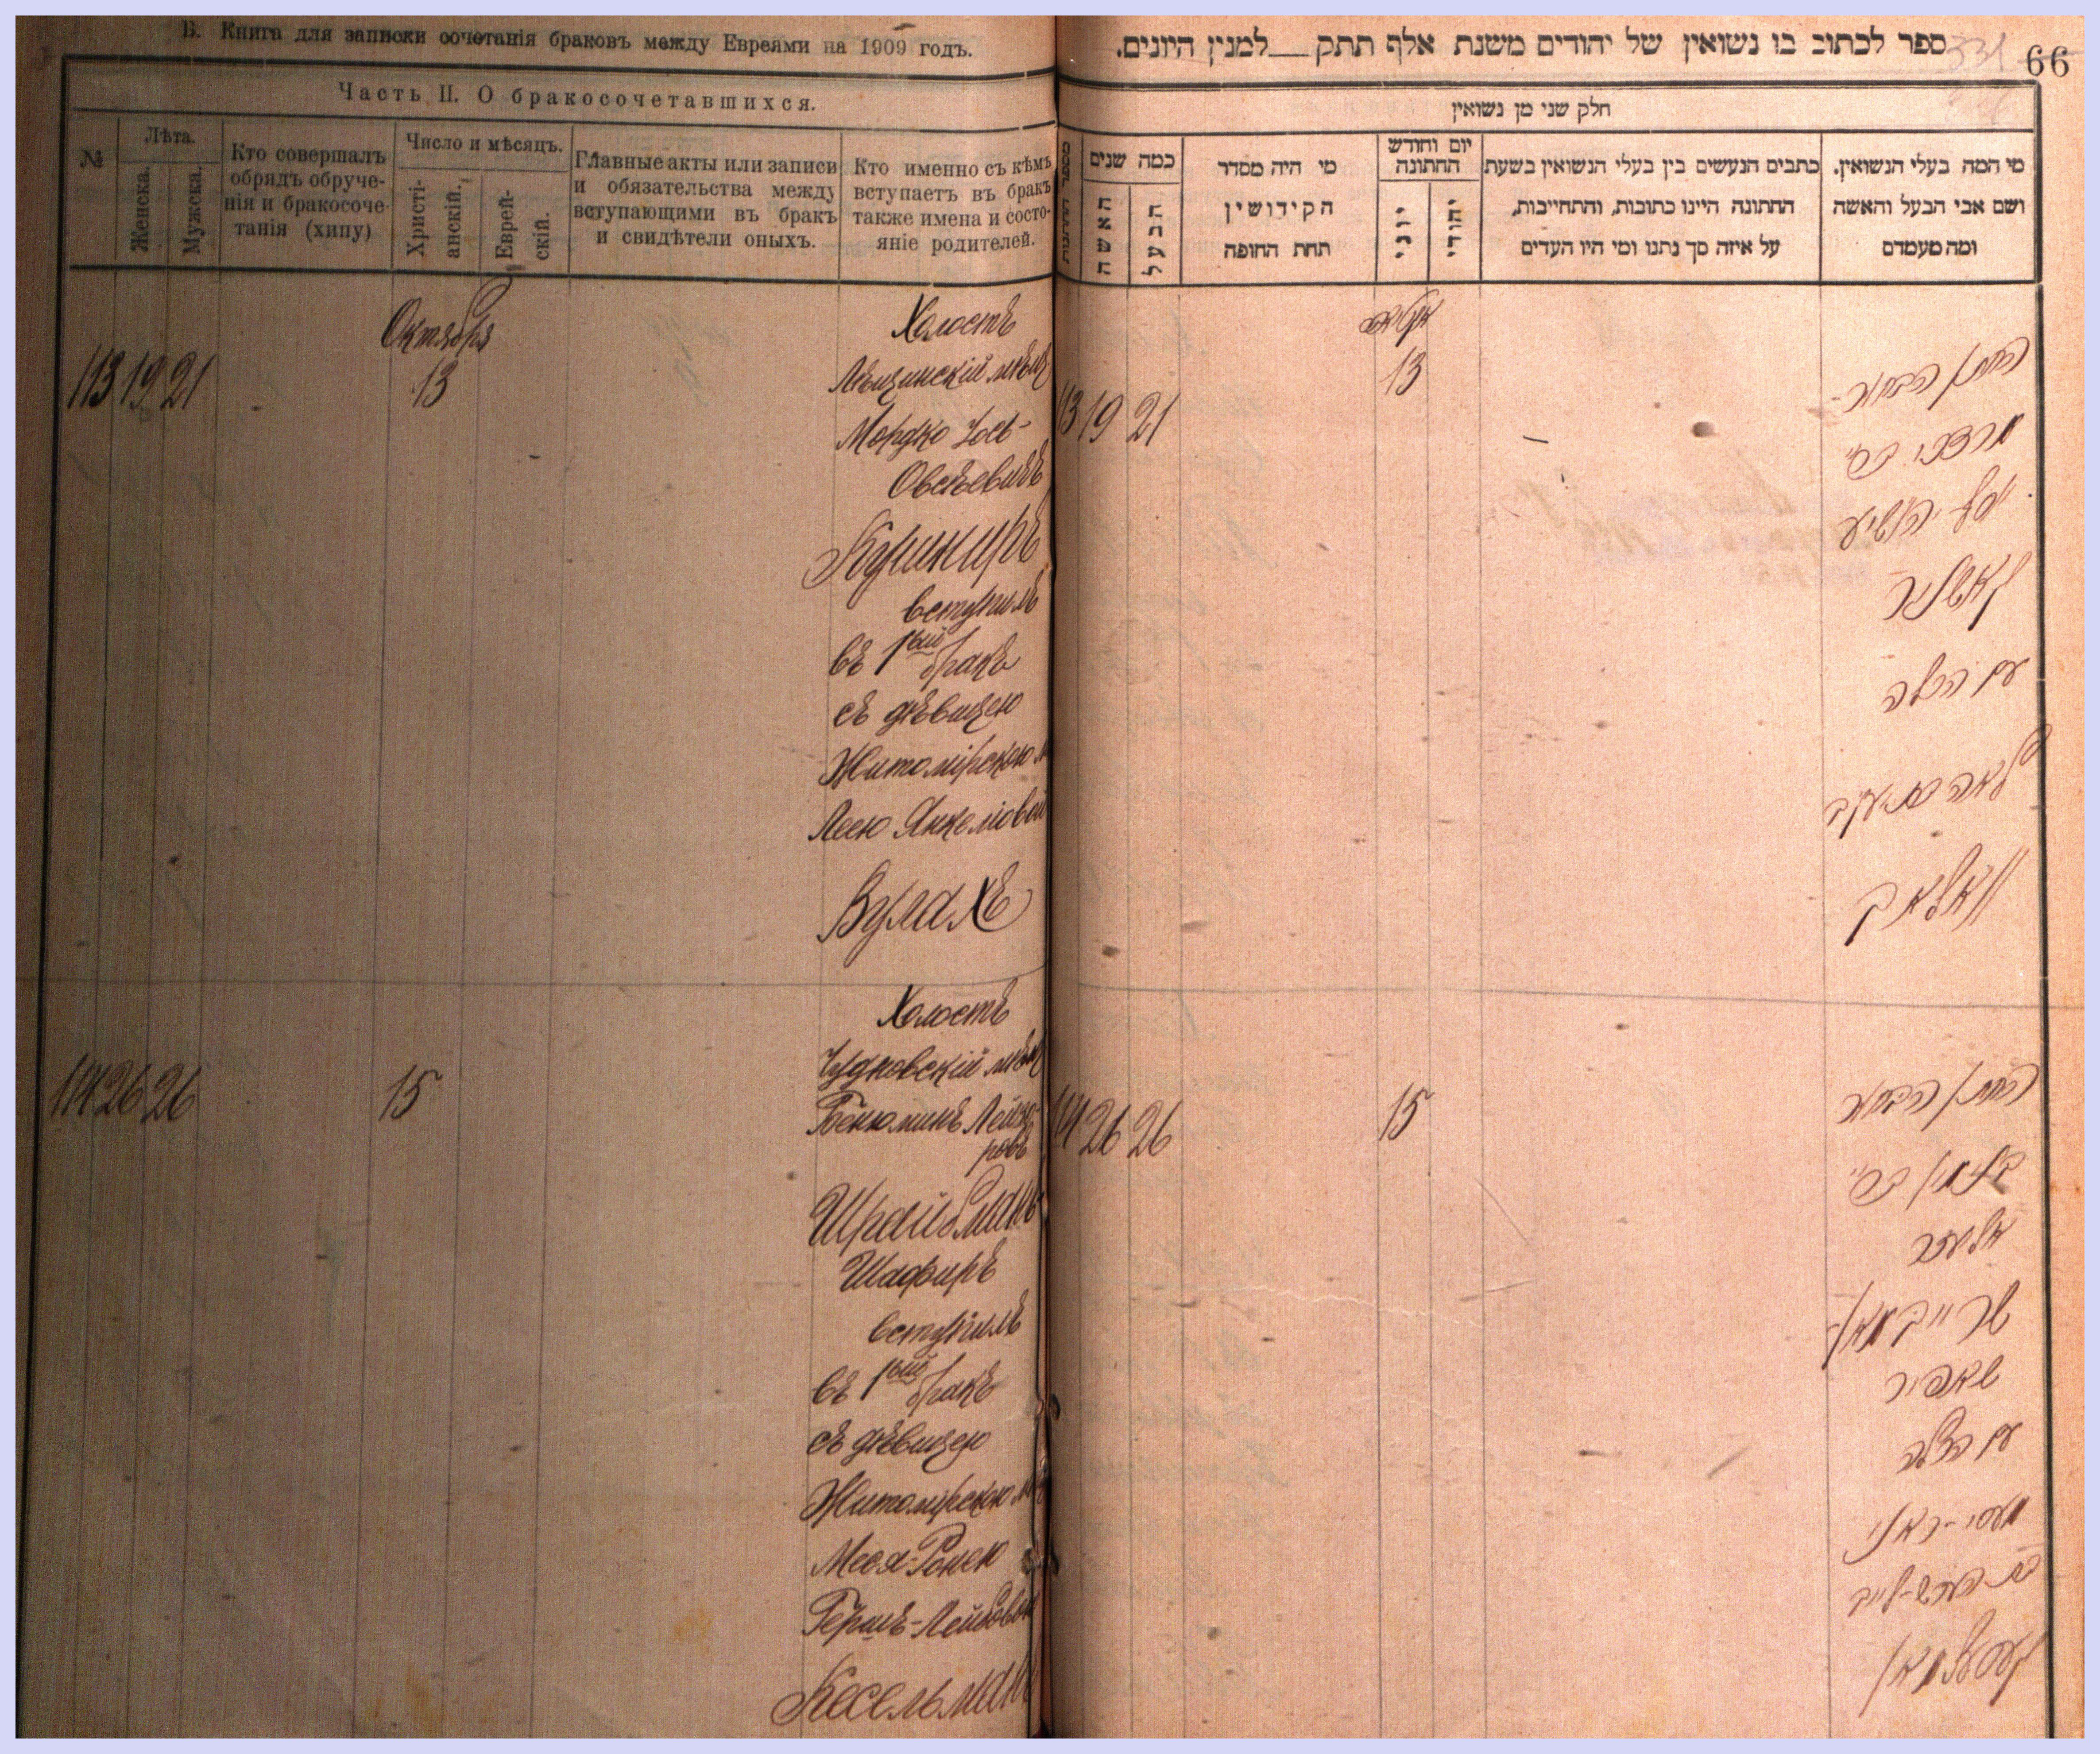 Б. Книга для записки сочетанія браковъ между Евреями на 1909 годъ.
Часть II. О бракосочетавшихся.
№
Лѣта.
Женска.
Мужска.
Кто совершалъ
обрядъ обруче-
нія и бракосоче-
танія (хипу)
Число и мѣсяцъ.
Христі-
анскій.
Еврей-
скій.
Главные акты или записи
и обязательства между
вступающими въ бракъ
и свидѣтели оныхъ.
Кто именно съ кѣмъ
вступаетъ въ бракъ
также имена и состо-
яніе родителей.
Октября
113 19 21
13
Холостъ
Мордко Іось-
Овсѣевичъ
Кушниръ
вступилъ
въ 1ый бракъ
съ дѣвицею
Житомірскою
Леею Янкелювой
Вулахъ
114 26 26
15
Холостъ
Чудновскій мѣщ
Бенюминъ Лейзе-
ровъ
Шрайбманъ
Шафиръ
вступилъ
въ 1ый бракъ
съ дѣвицею
Житомірскою
Меся-Ронею
Гершъ-Лейбовой
Кесельманъ
ספר לכתוב בו נשואין של יהודים משנת אלף תתק __ למנין היונים.
331
66
חלק שני מן נשואין
כמה שנים
האשה
הבעל
מי היה מסדר
הקידושין
תחת החופה
יום וחודש
החתונה
יוני
יהודי
כתבים הנעשים בין בעלי הנשואין בשעת
החתונה היינו כתובות, והתחייבות,
על איזה סך נתנו ומי היו העדים
מי המה בעלי הנשואין.
ושם אבי הבעל והאשה
ומה מעמדם
113 19 21
13
החתן הבחור
מרדכי ב״ר
יוסף יהושיע
קושניר
עם הכלה
לאה בת יעקב
וואלאך
114 26 26
15
החתן הבחור
בנימין ב״ר
אליעזר
שרייבמאן
שאפיר
עם הכלה
מעסי-ראני
בת הערש-לייב
קעסלמאן